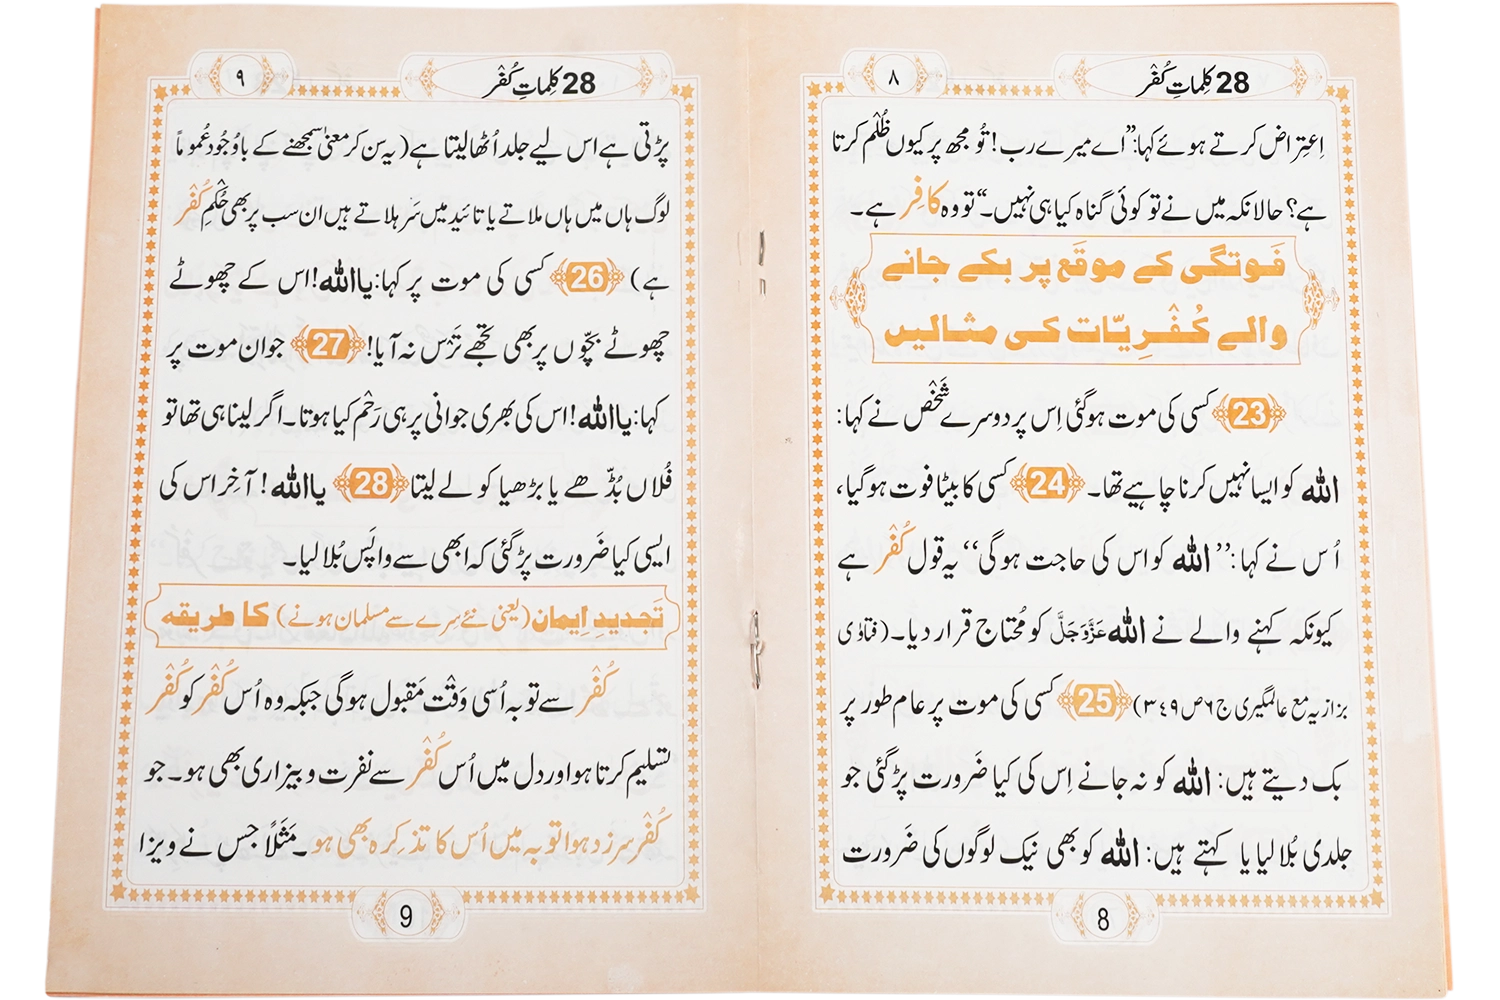 28 کلماتِ کُفْر
۸
اِعتِراض کرتے ہوئے کہا:”اے میرے رب! تُو مجھ پر کیوں ظُلْم کرتا
ہے؟ حالانکہ میں نے تو کوئی گناہ کیا ہی نہیں۔“ تو وہ کافِر ہے۔
فَوتگی کے موقَع پر بکے جانے
والے کُفْرِیّات کی مثالیں
23 کسی کی موت ہوگئی اِس پر دوسرے شَخْص نے کہا:
اللہ کو ایسا نہیں کرنا چاہیے تھا۔ 24 کسی کا بیٹا فوت ہوگیا،
اُس نے کہا:”اللہ کو اس کی حاجت ہوگی“ یہ قول کُفْر ہے
کیونکہ کہنے والے نے اللہ عَزَّوَجَلَّ کو مُحتاج قرار دیا۔ (فتاوٰی
بزازیہ مع عالمگیری ج۶ص۳۴۹) 25 کسی کی موت پر عام طور پر
بک دیتے ہیں: اللہ کو نہ جانے اِس کی کیا ضَرورت پڑگئی جو
جلدی بُلا لیا یا کہتے ہیں: اللہ کو بھی نیک لوگوں کی ضَرورت
8
28 کلماتِ کُفْر
۹
پڑتی ہے اس لیے جلد اُٹھا لیتا ہے (یہ سن کر معنیٰ سمجھنے کے باوُجُود عُموماً
لوگ ہاں میں ہاں ملاتے یا تائید میں سَر ہلاتے ہیں ان سب پر بھی حُکْمِ کُفْر
ہے) 26 کسی کی موت پر کہا:یااللہ!اس کے چھوٹے
چھوٹے بچّوں پر بھی تجھے تَرْس نہ آیا! 27 جوان موت پر
کہا:یااللہ!اس کی بھری جوانی پر ہی رَحْم کیا ہوتا۔ اگر لینا ہی تھا تو
فُلاں بُڈّھے یا بڑھیا کو لے لیتا 28 یااللہ! آخِر اس کی
ایسی کیا ضَرورت پڑگئی کہ ابھی سے واپَس بُلا لیا۔
تَجدیدِ اِیمان (یعنی نئے سِرے سے مسلمان ہونے) کا طریقہ
کُفْر سے توبہ اُسی وَقْت مَقبول ہوگی جبکہ وہ اُس کُفْر کو کُفْر
تسلیم کرتا ہو اور دل میں اُس کُفْر سے نفرت و بیزاری بھی ہو۔ جو
کُفْر سرزد ہوا توبہ میں اُس کا تذکِرہ بھی ہو۔ مَثَلاً جس نے ویزا
9